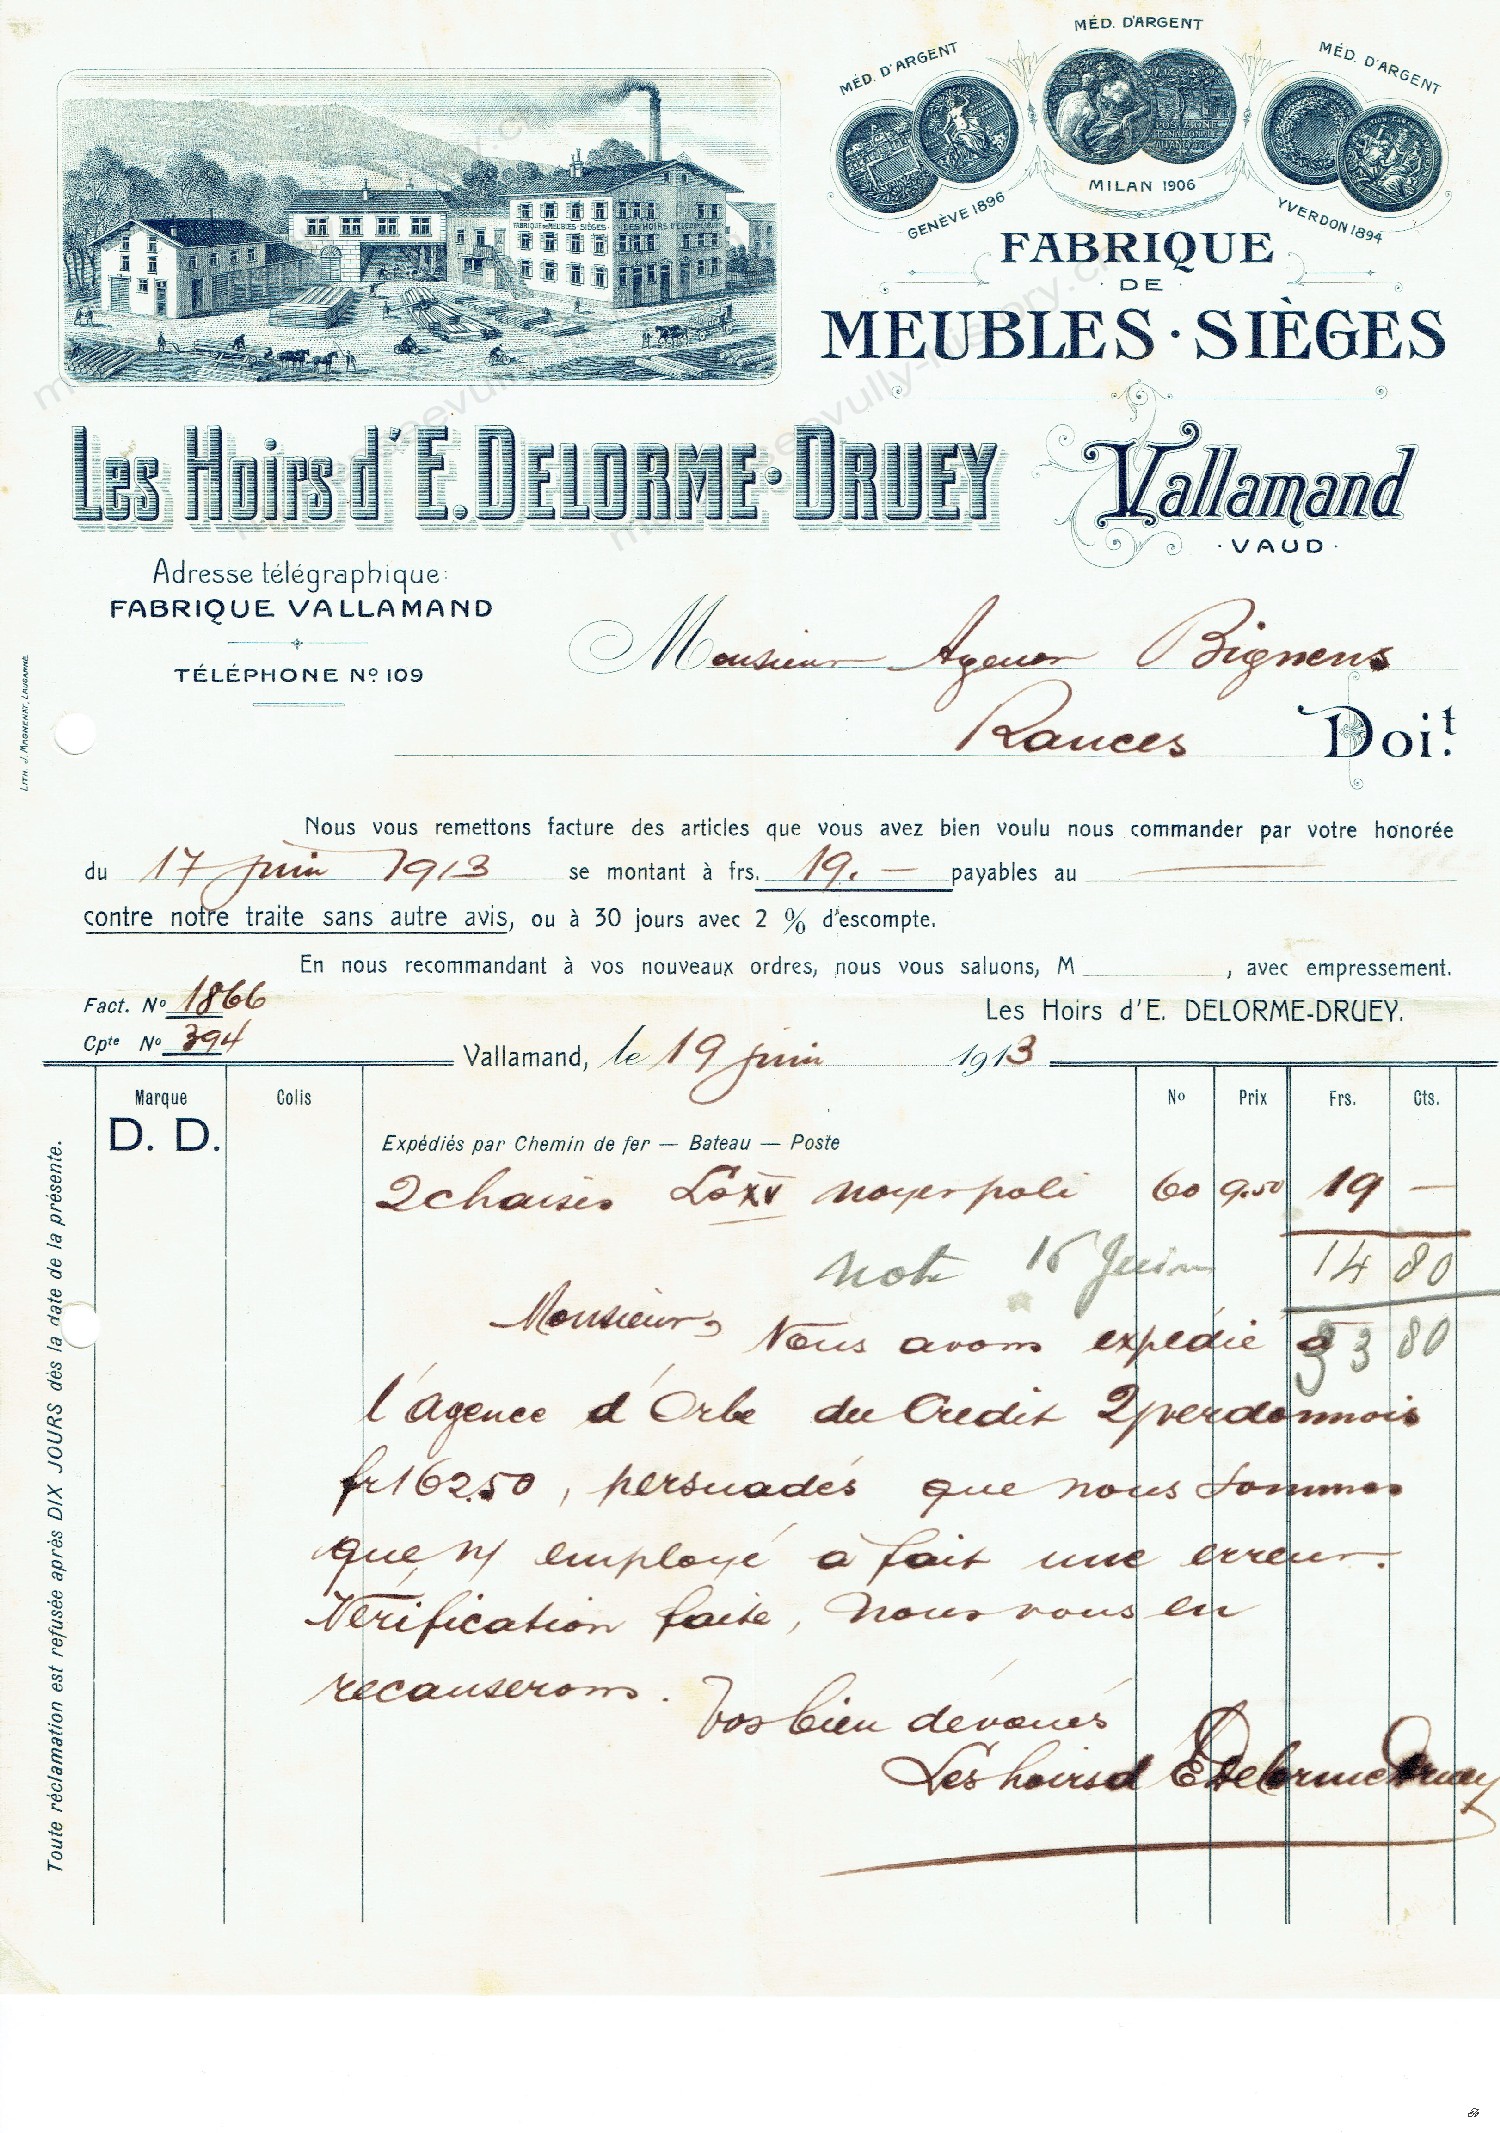 MÉD. D'ARGENT
MÉD. D'ARGENT
MÉD. D'ARGENT
GENÈVE 1896
MILAN 1906
YVERDON 1894
FABRIQUE DE MEUBLES SIÈGES
LES HOIRS D'E. DELORME
FABRIQUE
DE
MEUBLES · SIÈGES
Les Hoirs d'E. DELORME · DRUEY
Vallamand
· VAUD ·
Adresse télégraphique:
FABRIQUE VALLAMAND
TÉLÉPHONE Nº 109
LITH. J. MAGNENAT, LAUSANNE
Monsieur Agenor Bignens
Rances Doi.t
Nous vous remettons facture des articles que vous avez bien voulu nous commander par votre honorée
du 17 juin 1913 se montant à frs. 19.— payables au —
contre notre traite sans autre avis, ou à 30 jours avec 2 % d'escompte.
En nous recommandant à vos nouveaux ordres, nous vous saluons, M , avec empressement.
Fact. Nº 1866
Les Hoirs d'E. DELORME-DRUEY.
Cpte Nº 394
Vallamand, le 19 juin 1913
Marque Colis Nº Prix Frs. Cts.
D. D.
Expédiés par Chemin de fer — Bateau — Poste
2 chaises Ls XV noyer poli 60 9.50 19 —
note 16 Juin 14 80
33 80
Monsieur, Nous avons expédié à
l'agence d'Orbe du Crédit Yverdonnois
fr 162.50, persuadés que nous sommes
que l'employé a fait une erreur.
Vérification faite, nous vous en
recauserons.
Vos bien dévoués
Les hoirs d'E Delorme Druey
Toute réclamation est refusée après DIX JOURS dès la date de la présente.